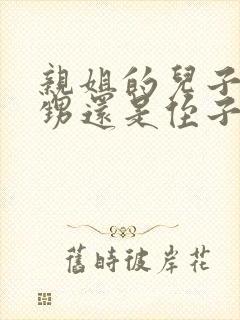 親姐的兒子
甥還是侄子
舊時彼岸花